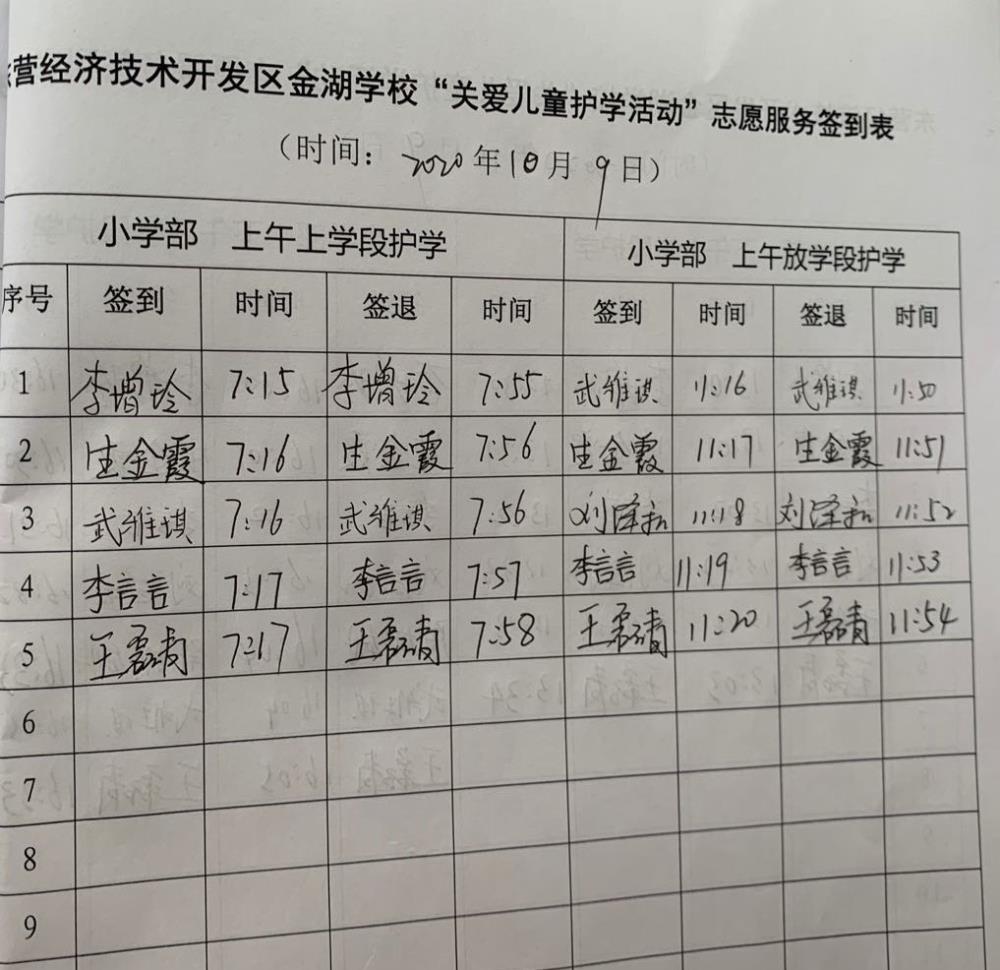 营经济技术开发区金湖学校“关爱儿童护学活动”志愿服务签到表
（时间：2020年10月9日）
小学部 上午上学段护学 小学部 上午放学段护学
序号 签到 时间 签退 时间 签到 时间 签退 时间
1 李增玲 7:15 李增玲 7:55 武维琪 11:16 武维琪 11:50
2 生金霞 7:16 生金霞 7:56 生金霞 11:17 生金霞 11:51
3 武维琪 7:16 武维琪 7:56 刘泽和 11:18 刘泽和 11:52
4 李言言 7:17 李言言 7:57 李言言 11:19 李言言 11:53
5 王磊青 7:17 王磊青 7:58 王磊青 11:20 王磊青 11:54
6
7
8
9